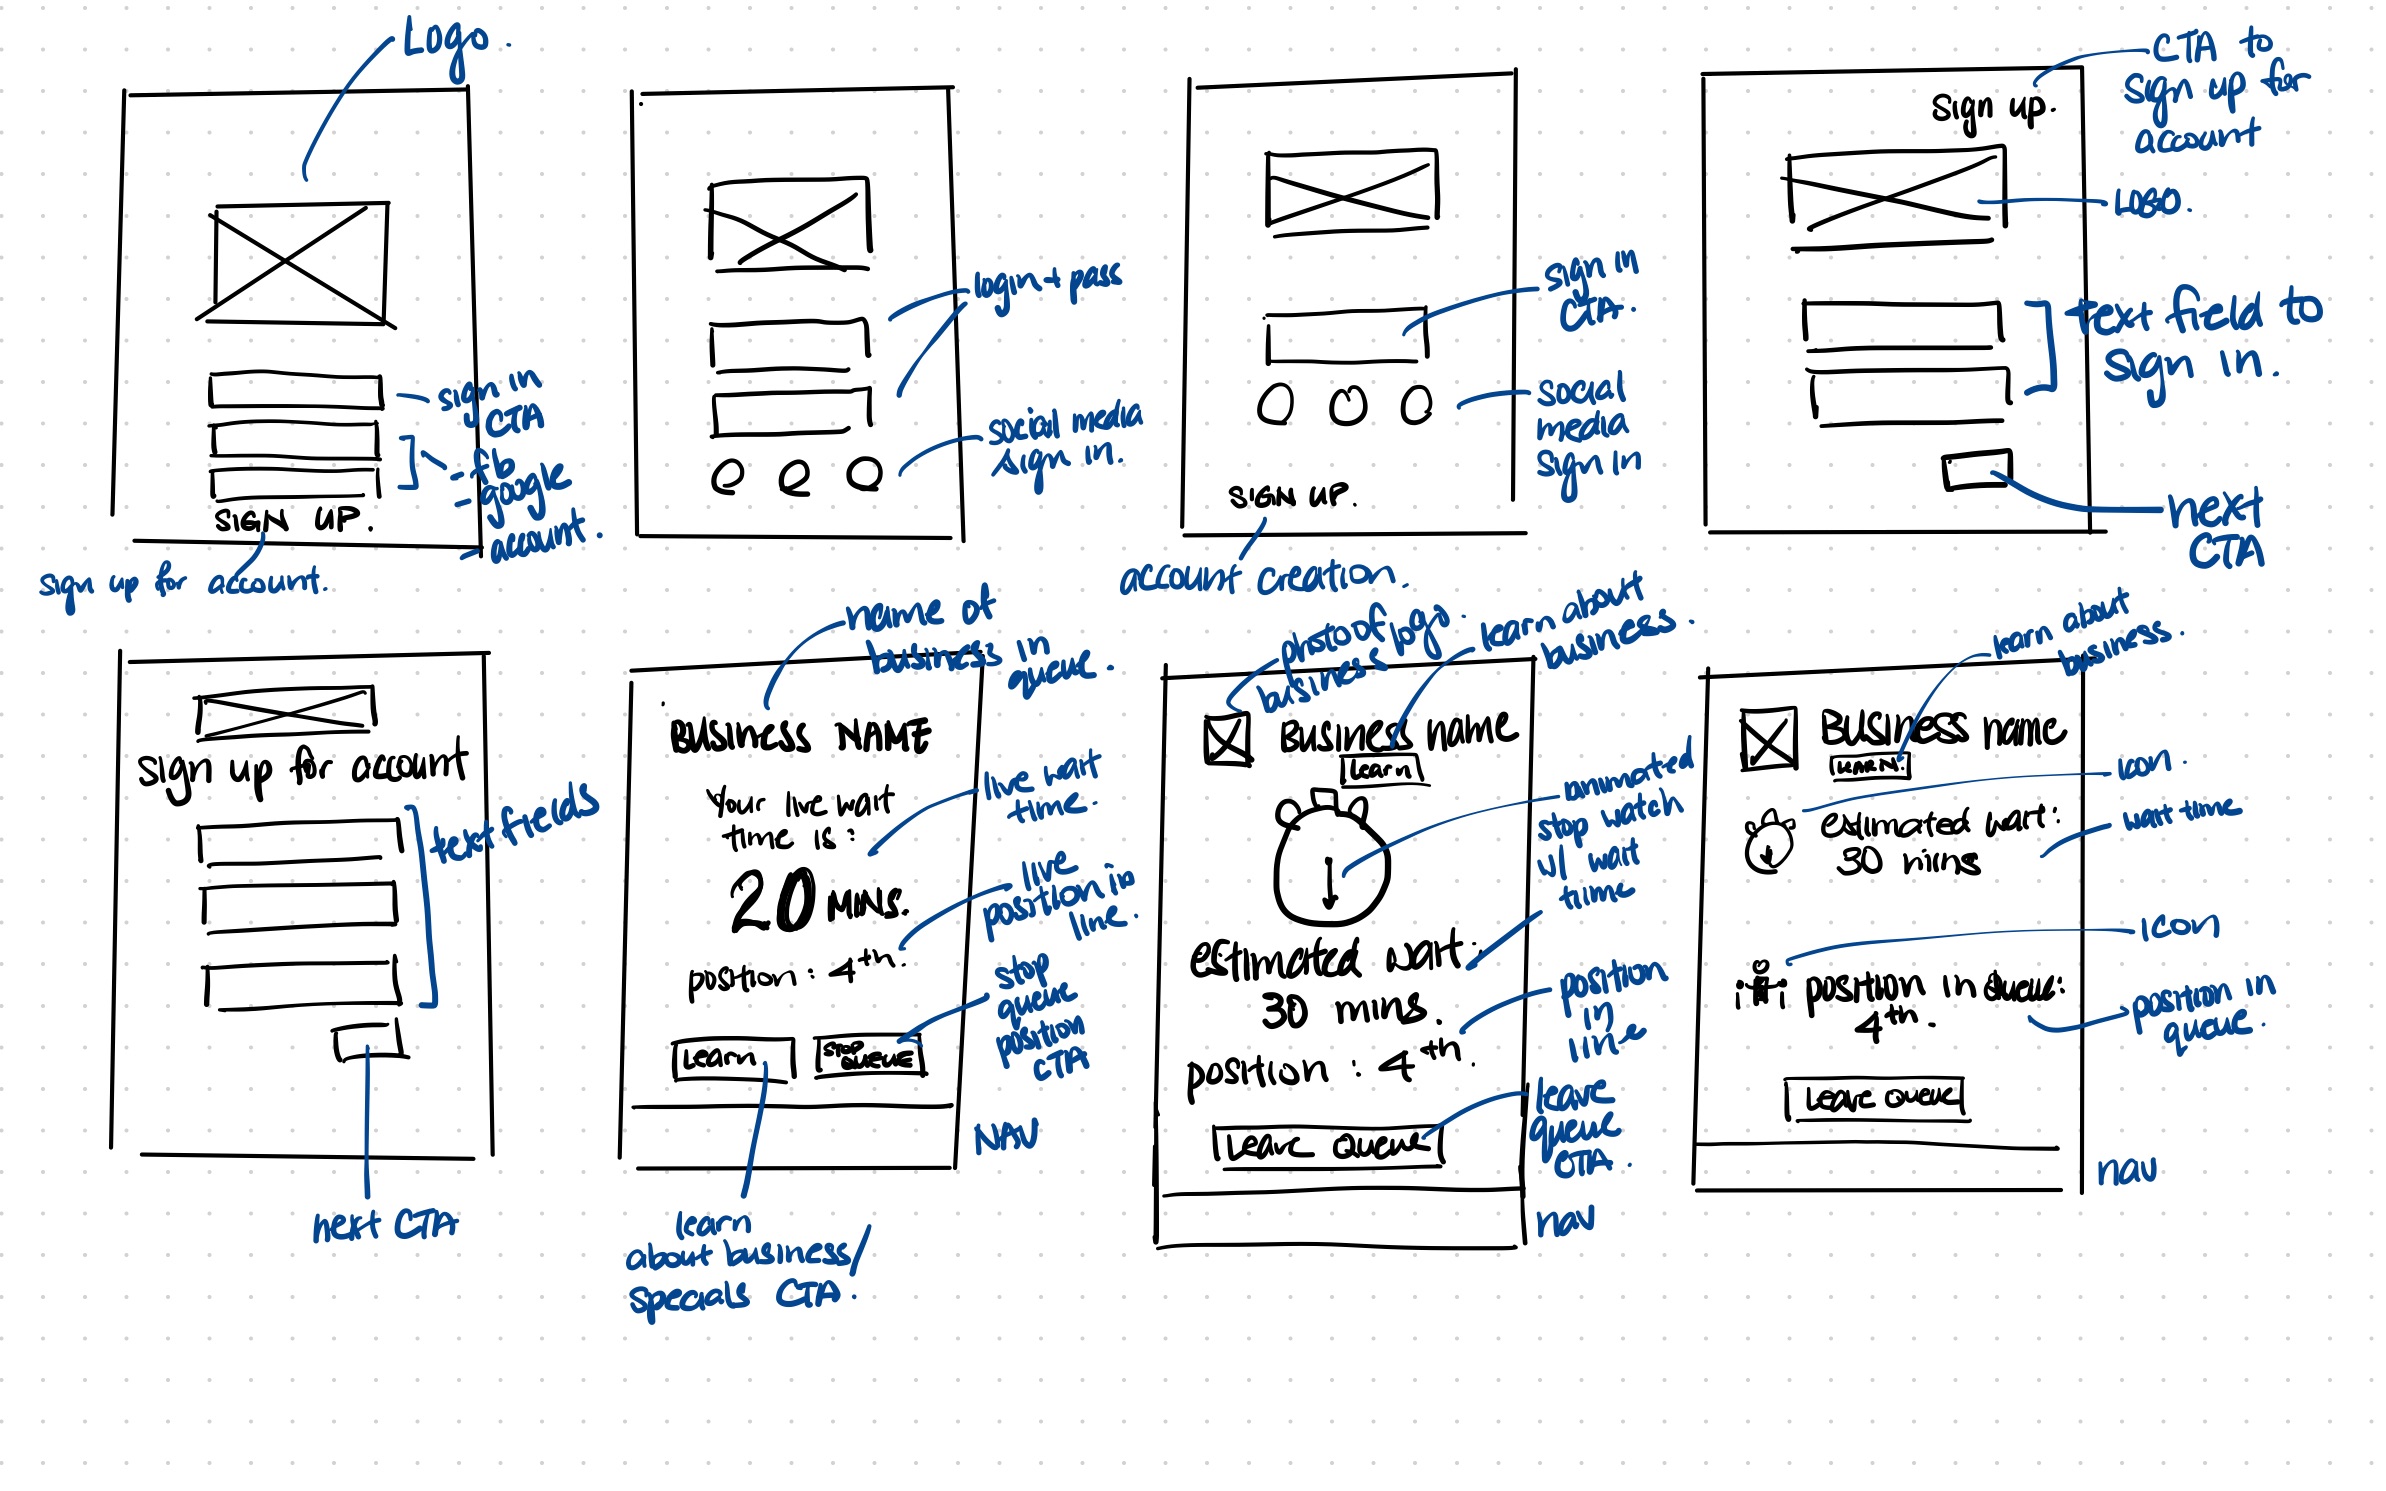 Logo.
sign in
CTA
- fb
- google
- account.
SIGN UP.
sign up for account.
login + pass
social media
sign in.
sign in
CTA.
social
media
sign in
SIGN UP.
account creation.
CTA to
sign up for
account
sign up.
LOGO.
text field to
sign in.
next
CTA
sign up for account
text fields
next CTA
name of
business in
queue.
BUSINESS NAME
Your live wait
time is:
20 MINS.
position: 4th.
live wait
time.
live
position in
line.
stop
queue
position
CTA
Learn
STOP
QUEUE
NAV
learn
about business
specials CTA!
photo of logo.
business
learn about
business.
Business name
Learn
animated
stop watch
w/ wait
time
estimated wait:
30 mins.
position : 4th.
position
in
line
Leave Queue
leave
queue
CTA.
nav
learn about
business.
Business name
LEARN.
icon.
estimated wait:
30 mins
wait time
icon
position in Queue:
4th.
position in
queue.
Leave Queue
nav